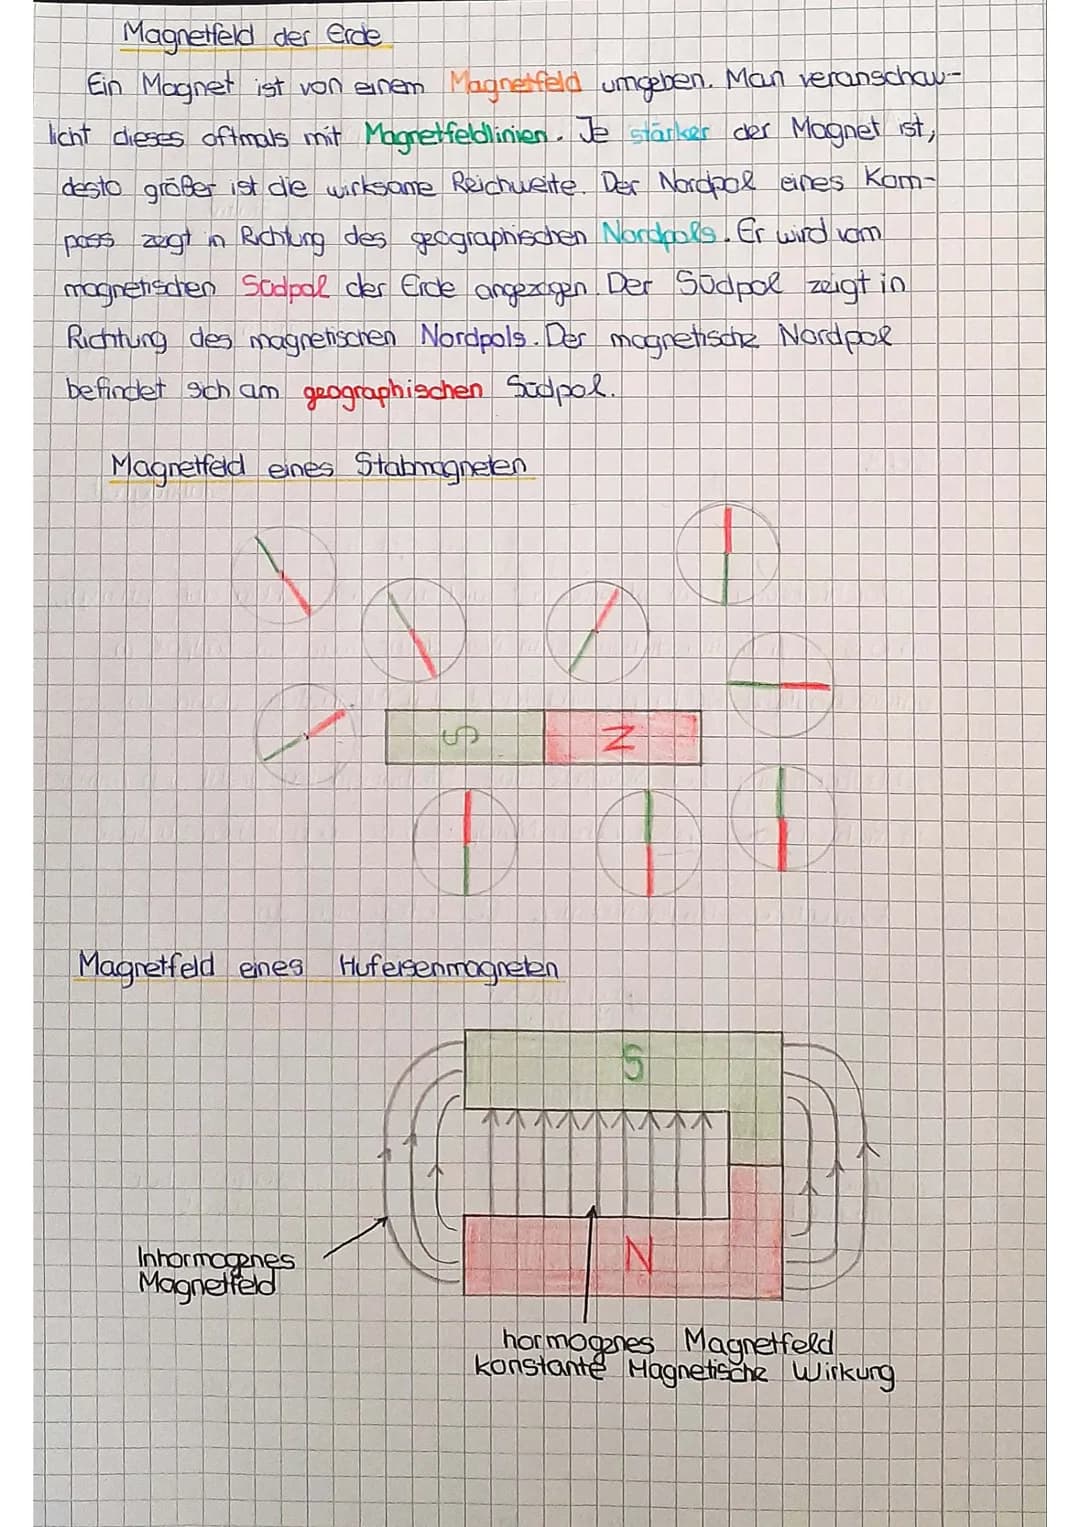 Magnetfeld der Erde
Ein Magnet ist von einem Magnetfeld umgeben. Man veranschau-
licht dieses oftmals mit Magnetfeldlinien. Je stärker der Magnet ist,
desto größer ist die wirksame Reichweite. Der Nordpol eines Kom-
pass zeigt in Richtung des geographischen Nordpols. Er wird vom
magnetischen Südpol der Erde angezogen. Der Südpol zeigt in
Richtung des magnetischen Nordpols. Der magnetische Nordpol
befindet sich am geographischen Südpol.
Magnetfeld eines Stabmagneten
S N
Magnetfeld eines Hufeisenmagneten
S
N
Inhormogenes
Magnetfeld
hormogenes Magnetfeld
konstante Magnetische Wirkung